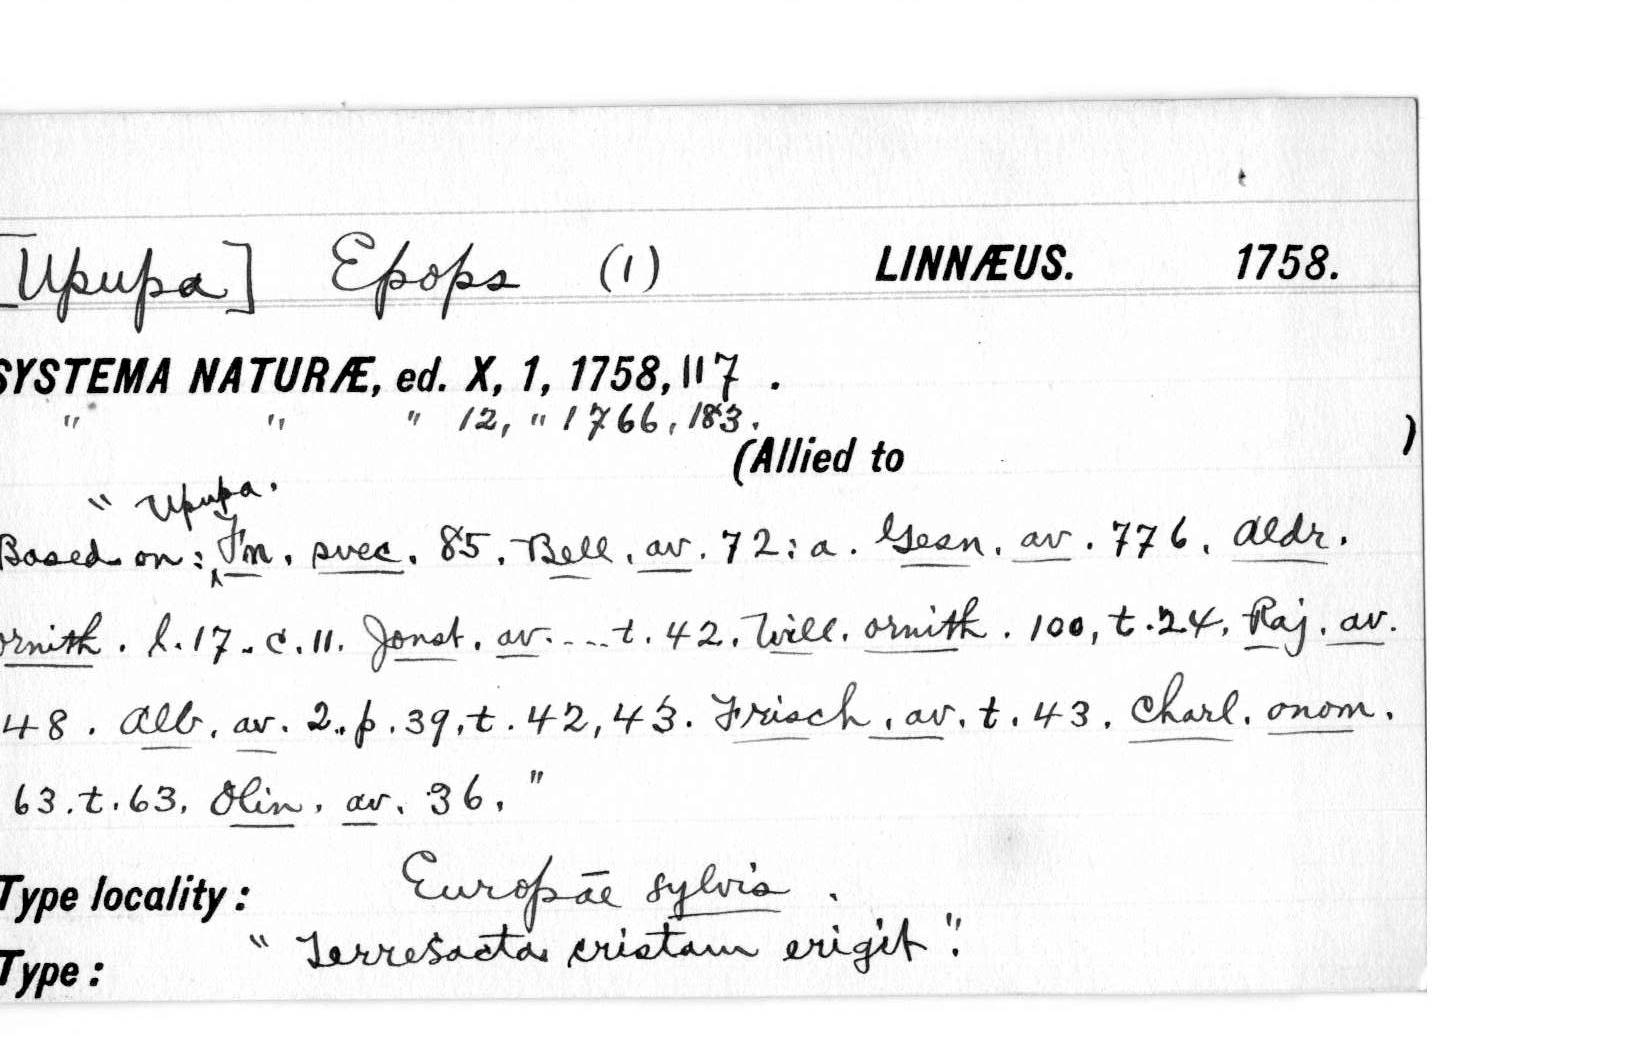 [Upupa] Epops (1) LINNÆUS. 1758.
SYSTEMA NATURÆ, ed. X, 1, 1758, 117.
" " " 12, " 1766, 183.
(Allied to )
" Upupa.
Based on: Fn. svec. 85. Bell. av. 72: a. Gesn. av. 776. Aldr.
ornith. l. 17. c. 11. Jonst. av. ... t. 42. Will. ornith. 100, t. 24. Raj. av.
48. Alb. av. 2. p. 39. t. 42, 43. Frisch. av. t. 43. Charl. onom.
63. t. 63. Olin. av. 36. "
Type locality: Europæ sylvis.
" cristam erigit".
Type: